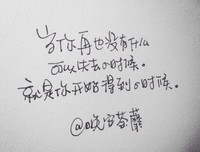 当你再也没有什么
可以失去的时候。
就是你开始得到的时候。
@晚安蔷薇